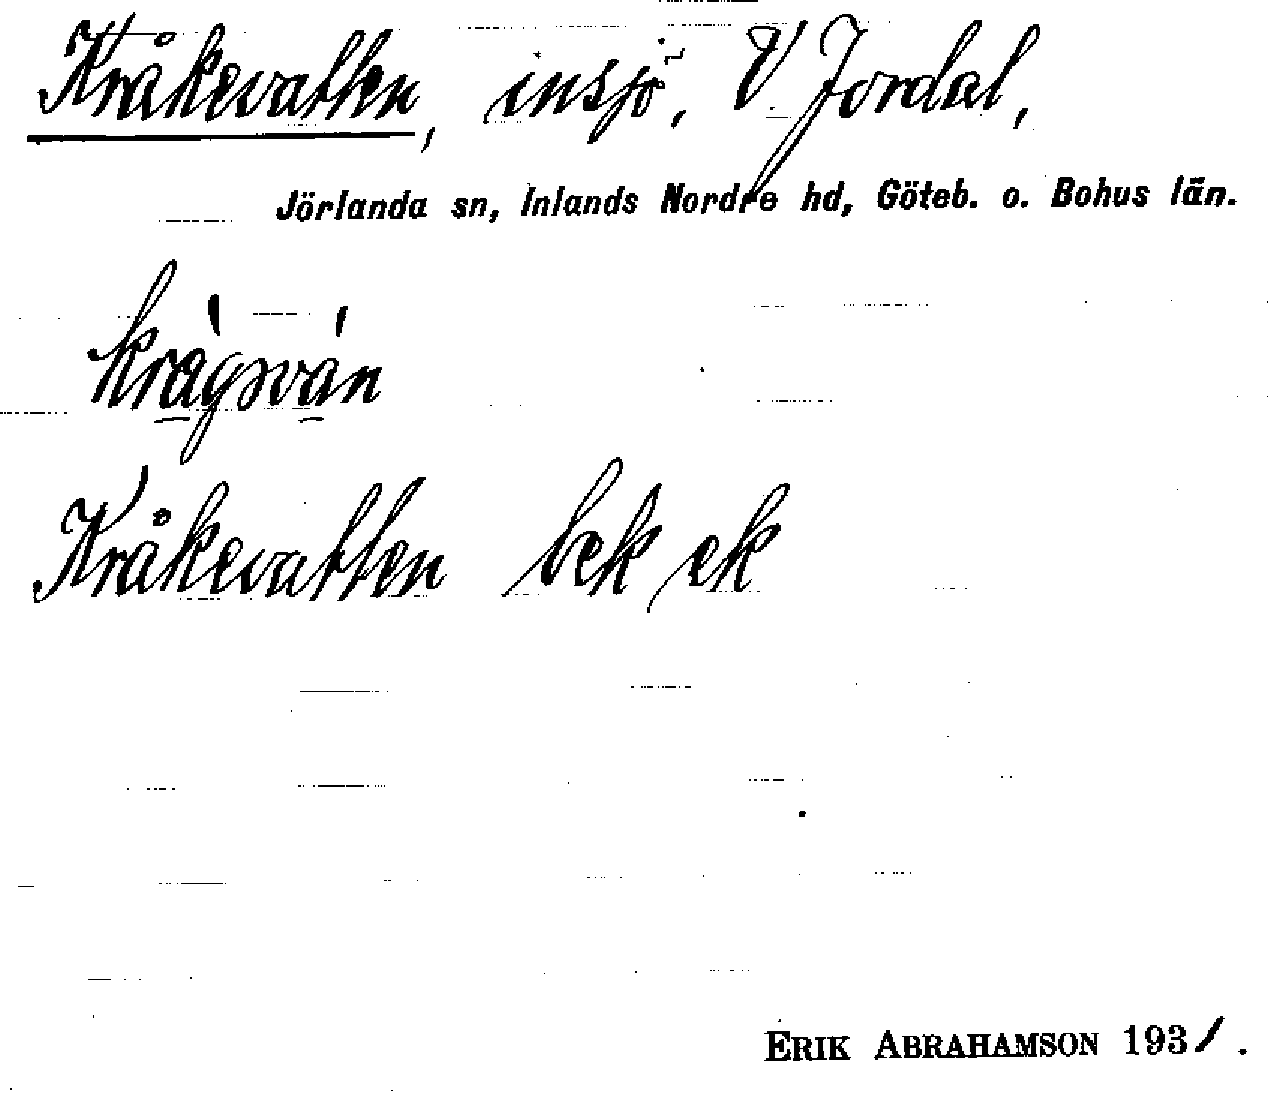 Kråkevatten, insjö, V Jordal,
Jörlanda sn, Inlands Nordre hd, Göteb. o. Bohus län.
Kråkevatten bek ek
ERIK ABRAHAMSON 1931.